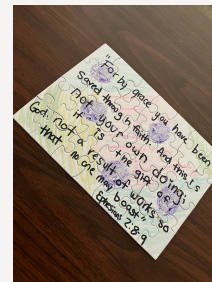 "For by grace you have been
saved through faith. And this is
not your own doing;
it is the gift of
God, not a result of works, so
that no one may boast."
Ephesians 2:8-9